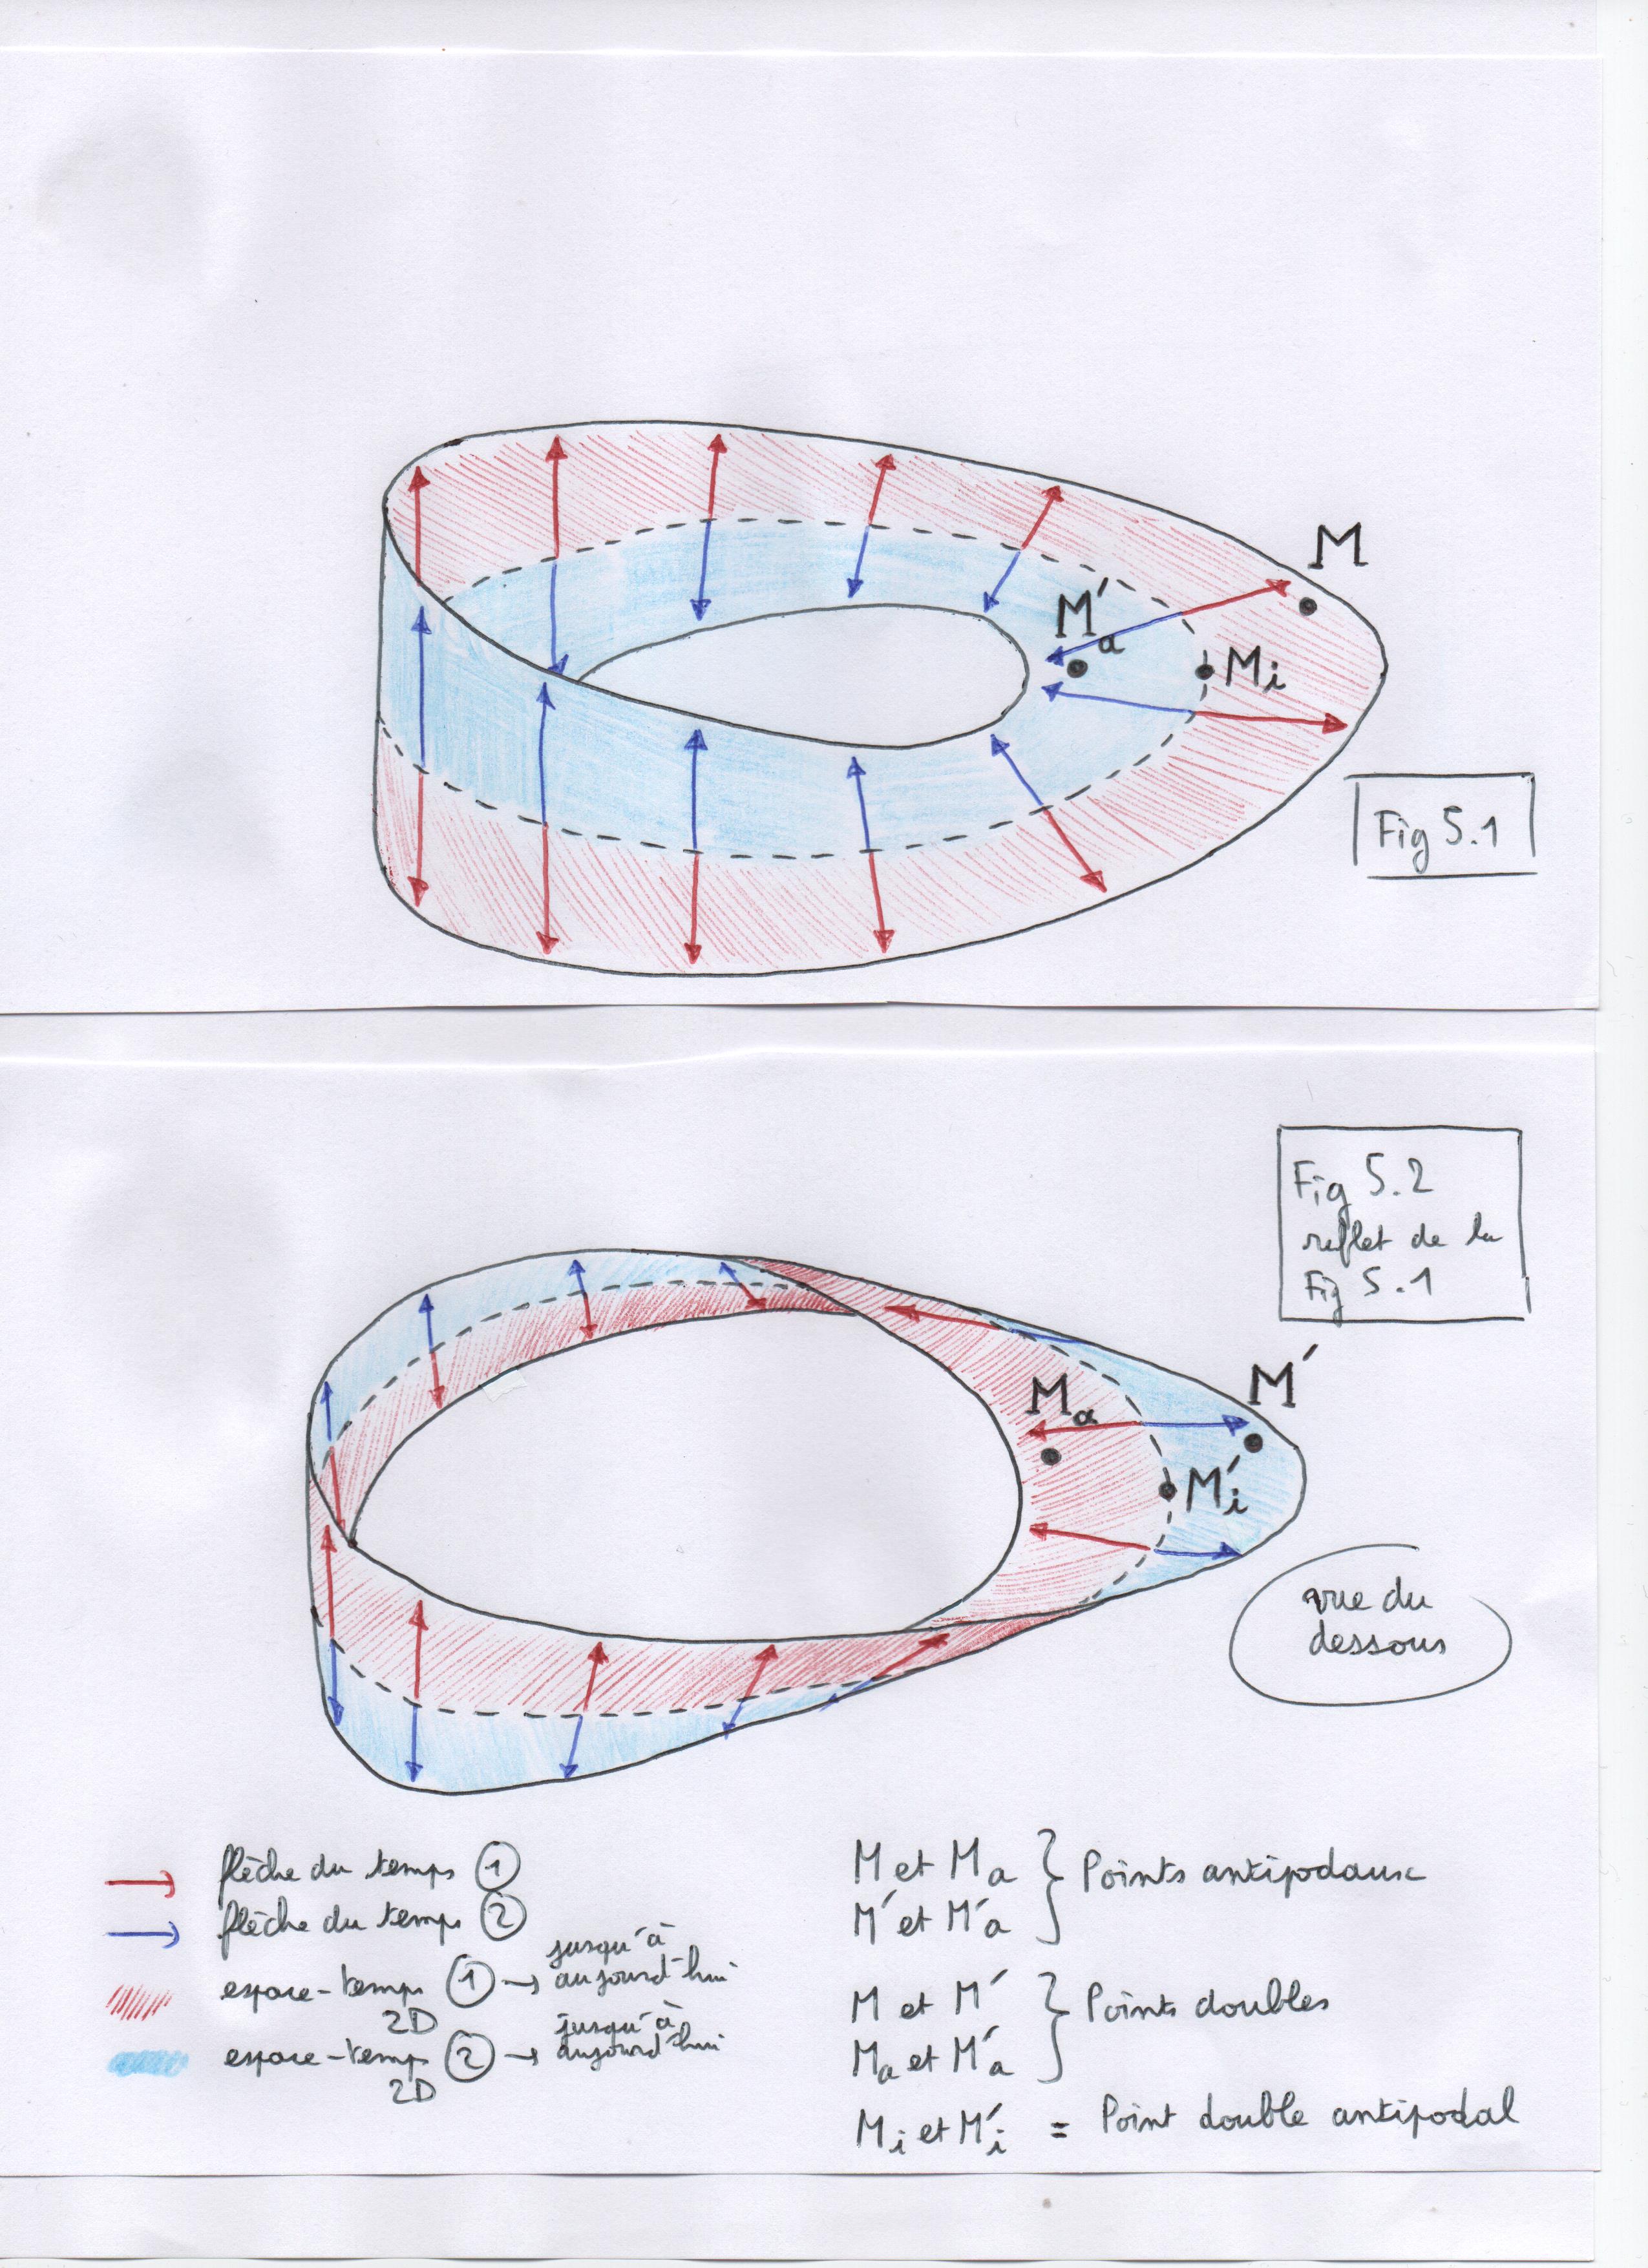 M
M'a
Mi
Fig 5.1
Fig 5.2
reflet de la
Fig 5.1
M'
Ma
M'i
vue du
dessous
flèche du temps 1
flèche du temps 2
espace-temps 1 → jusqu'à aujourd'hui
2D
espace-temps 2 → jusqu'à aujourd'hui
2D
M et Ma } Points antipodaux
M' et M'a
M et M' } Points doubles
Ma et M'a
Mi et M'i = Point double antipodal